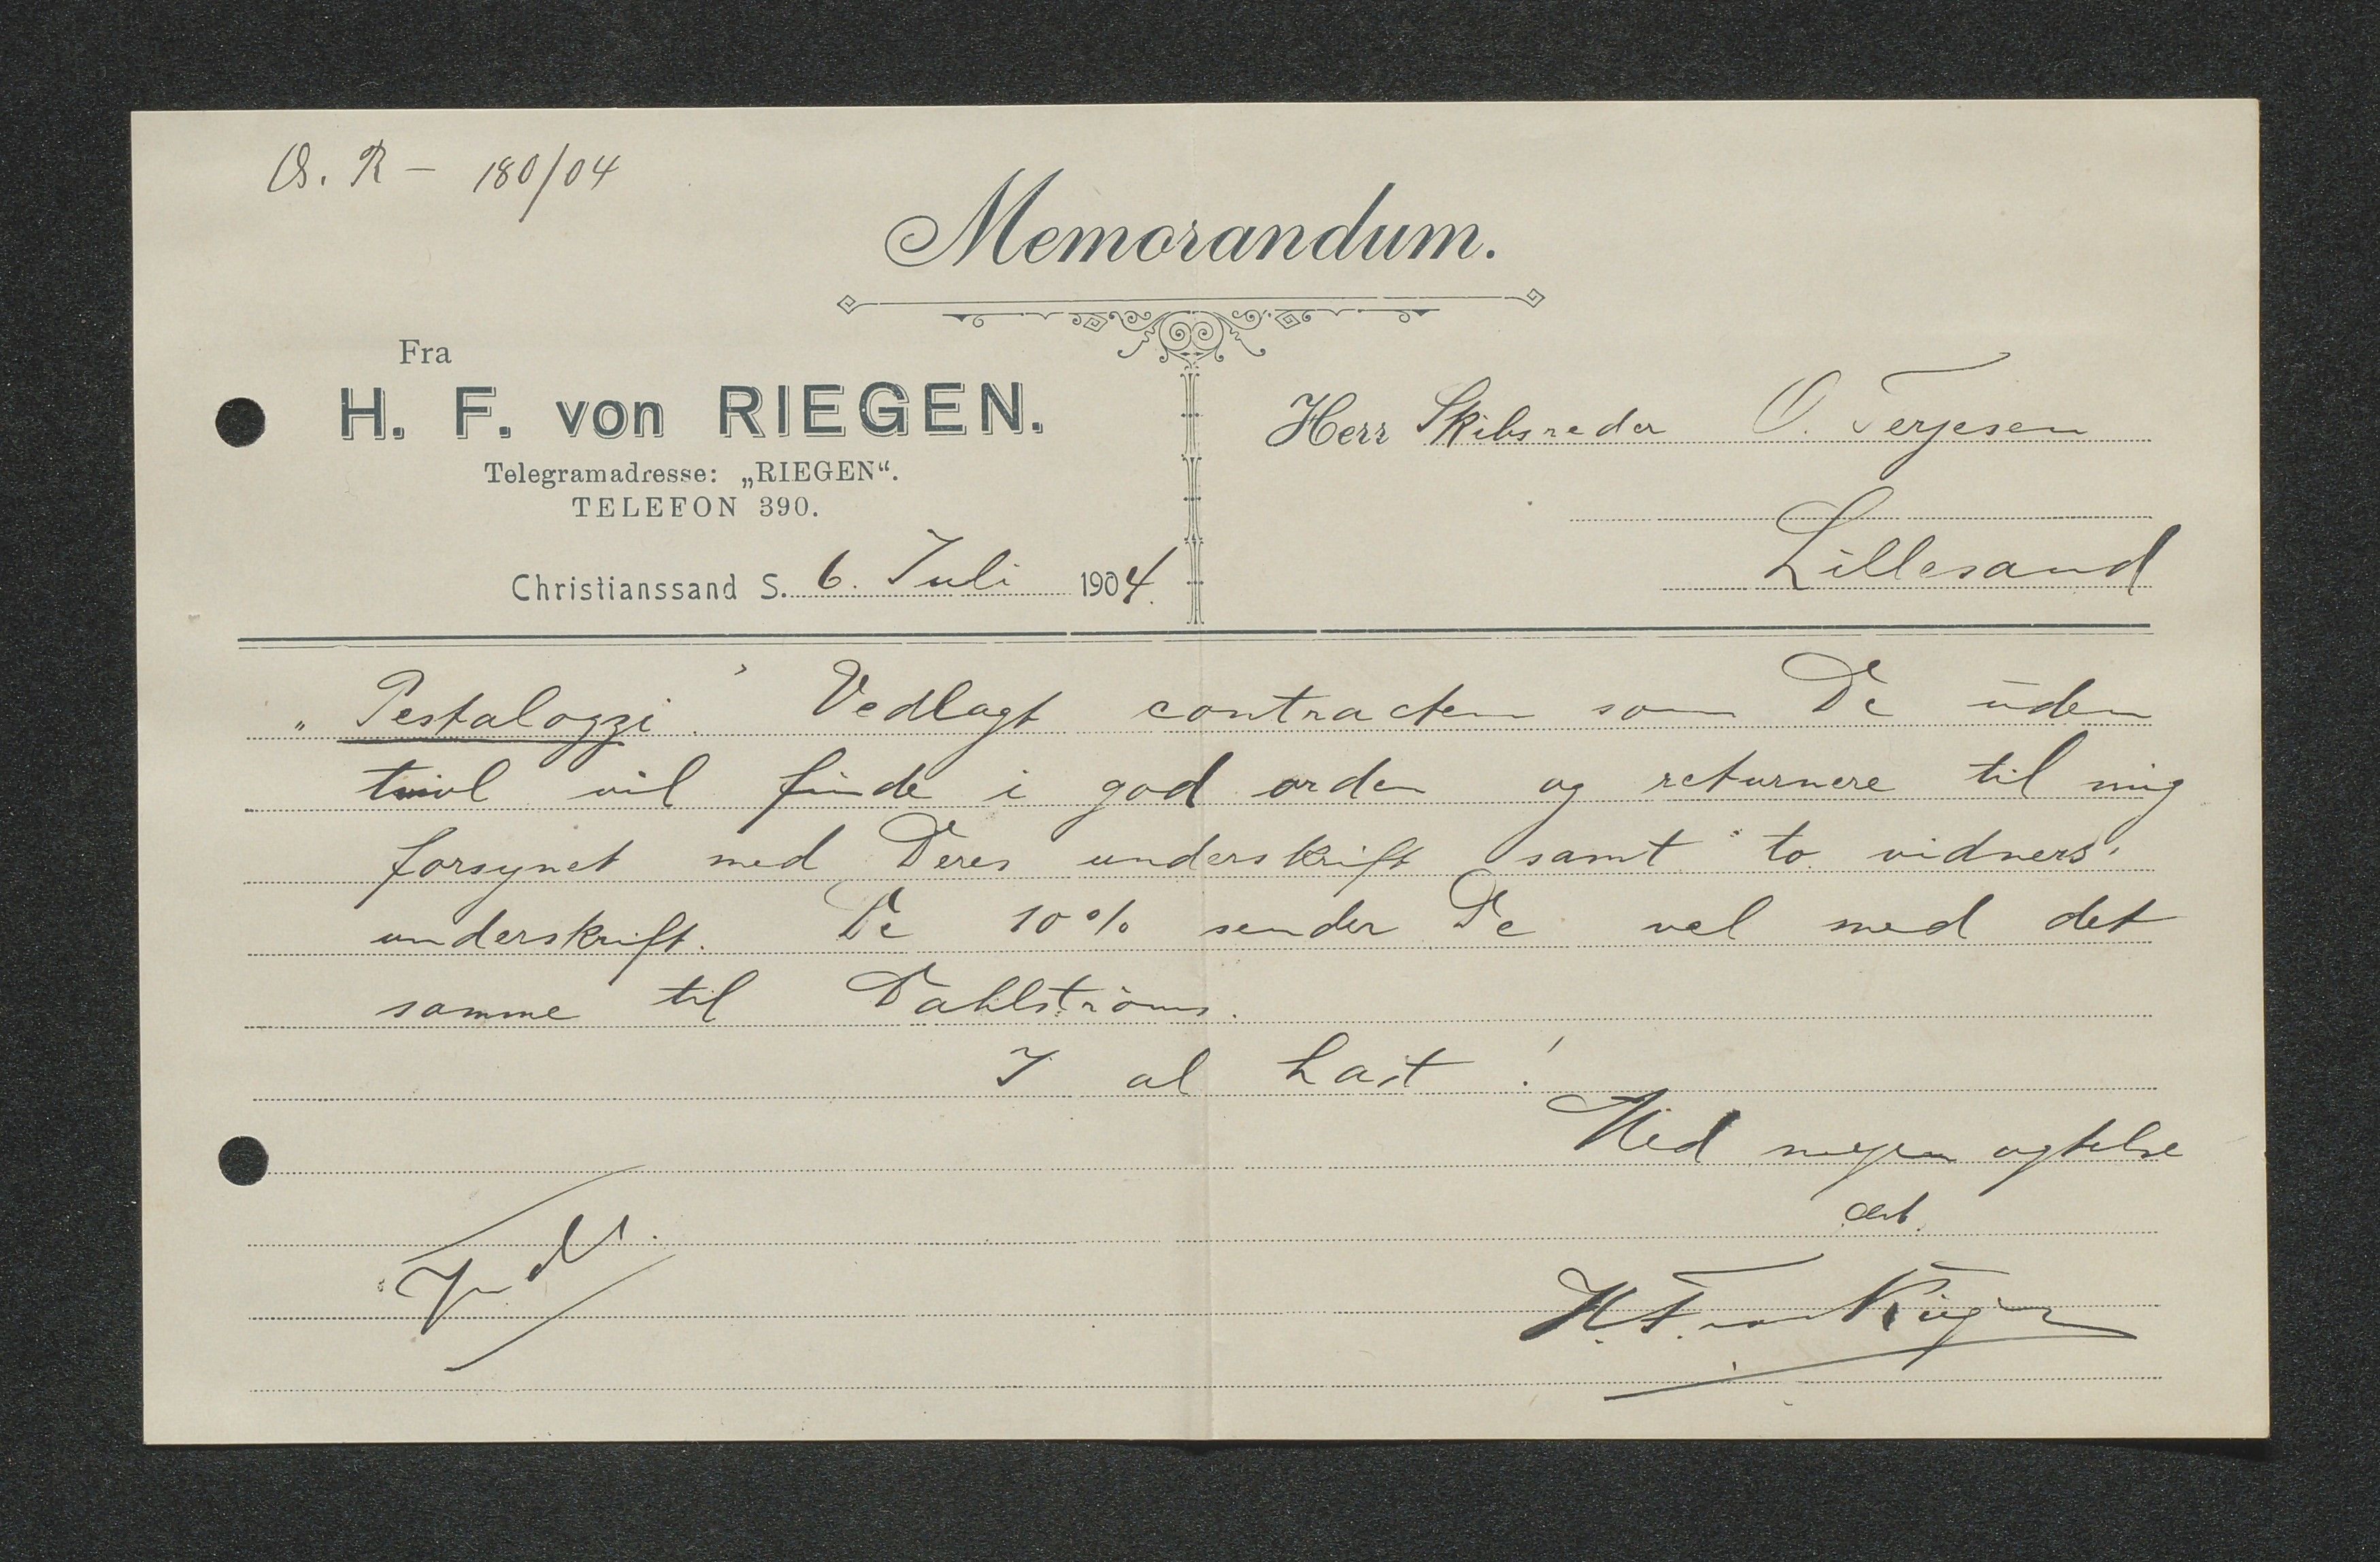 B. R - 180/04
Memorandum.
Fra
H. F. von RIEGEN.
Telegramadresse: „RIEGEN“.
TELEFON 390.
Christianssand S. 6. Juli 1904.
Herr Skibsreder O. Terjesen
Lillesand
„Pestalozzi.“ Vedlagt contracten som De uden
tvivl vil finde i god orden og returnere til mig
forsynet med Deres underskrift samt to vidners'
underskrift. De 10% sender De vel med det
samme til Dahlströms.
I al hast!
Med megen agtelse
ærb.
H. F. von Riegen